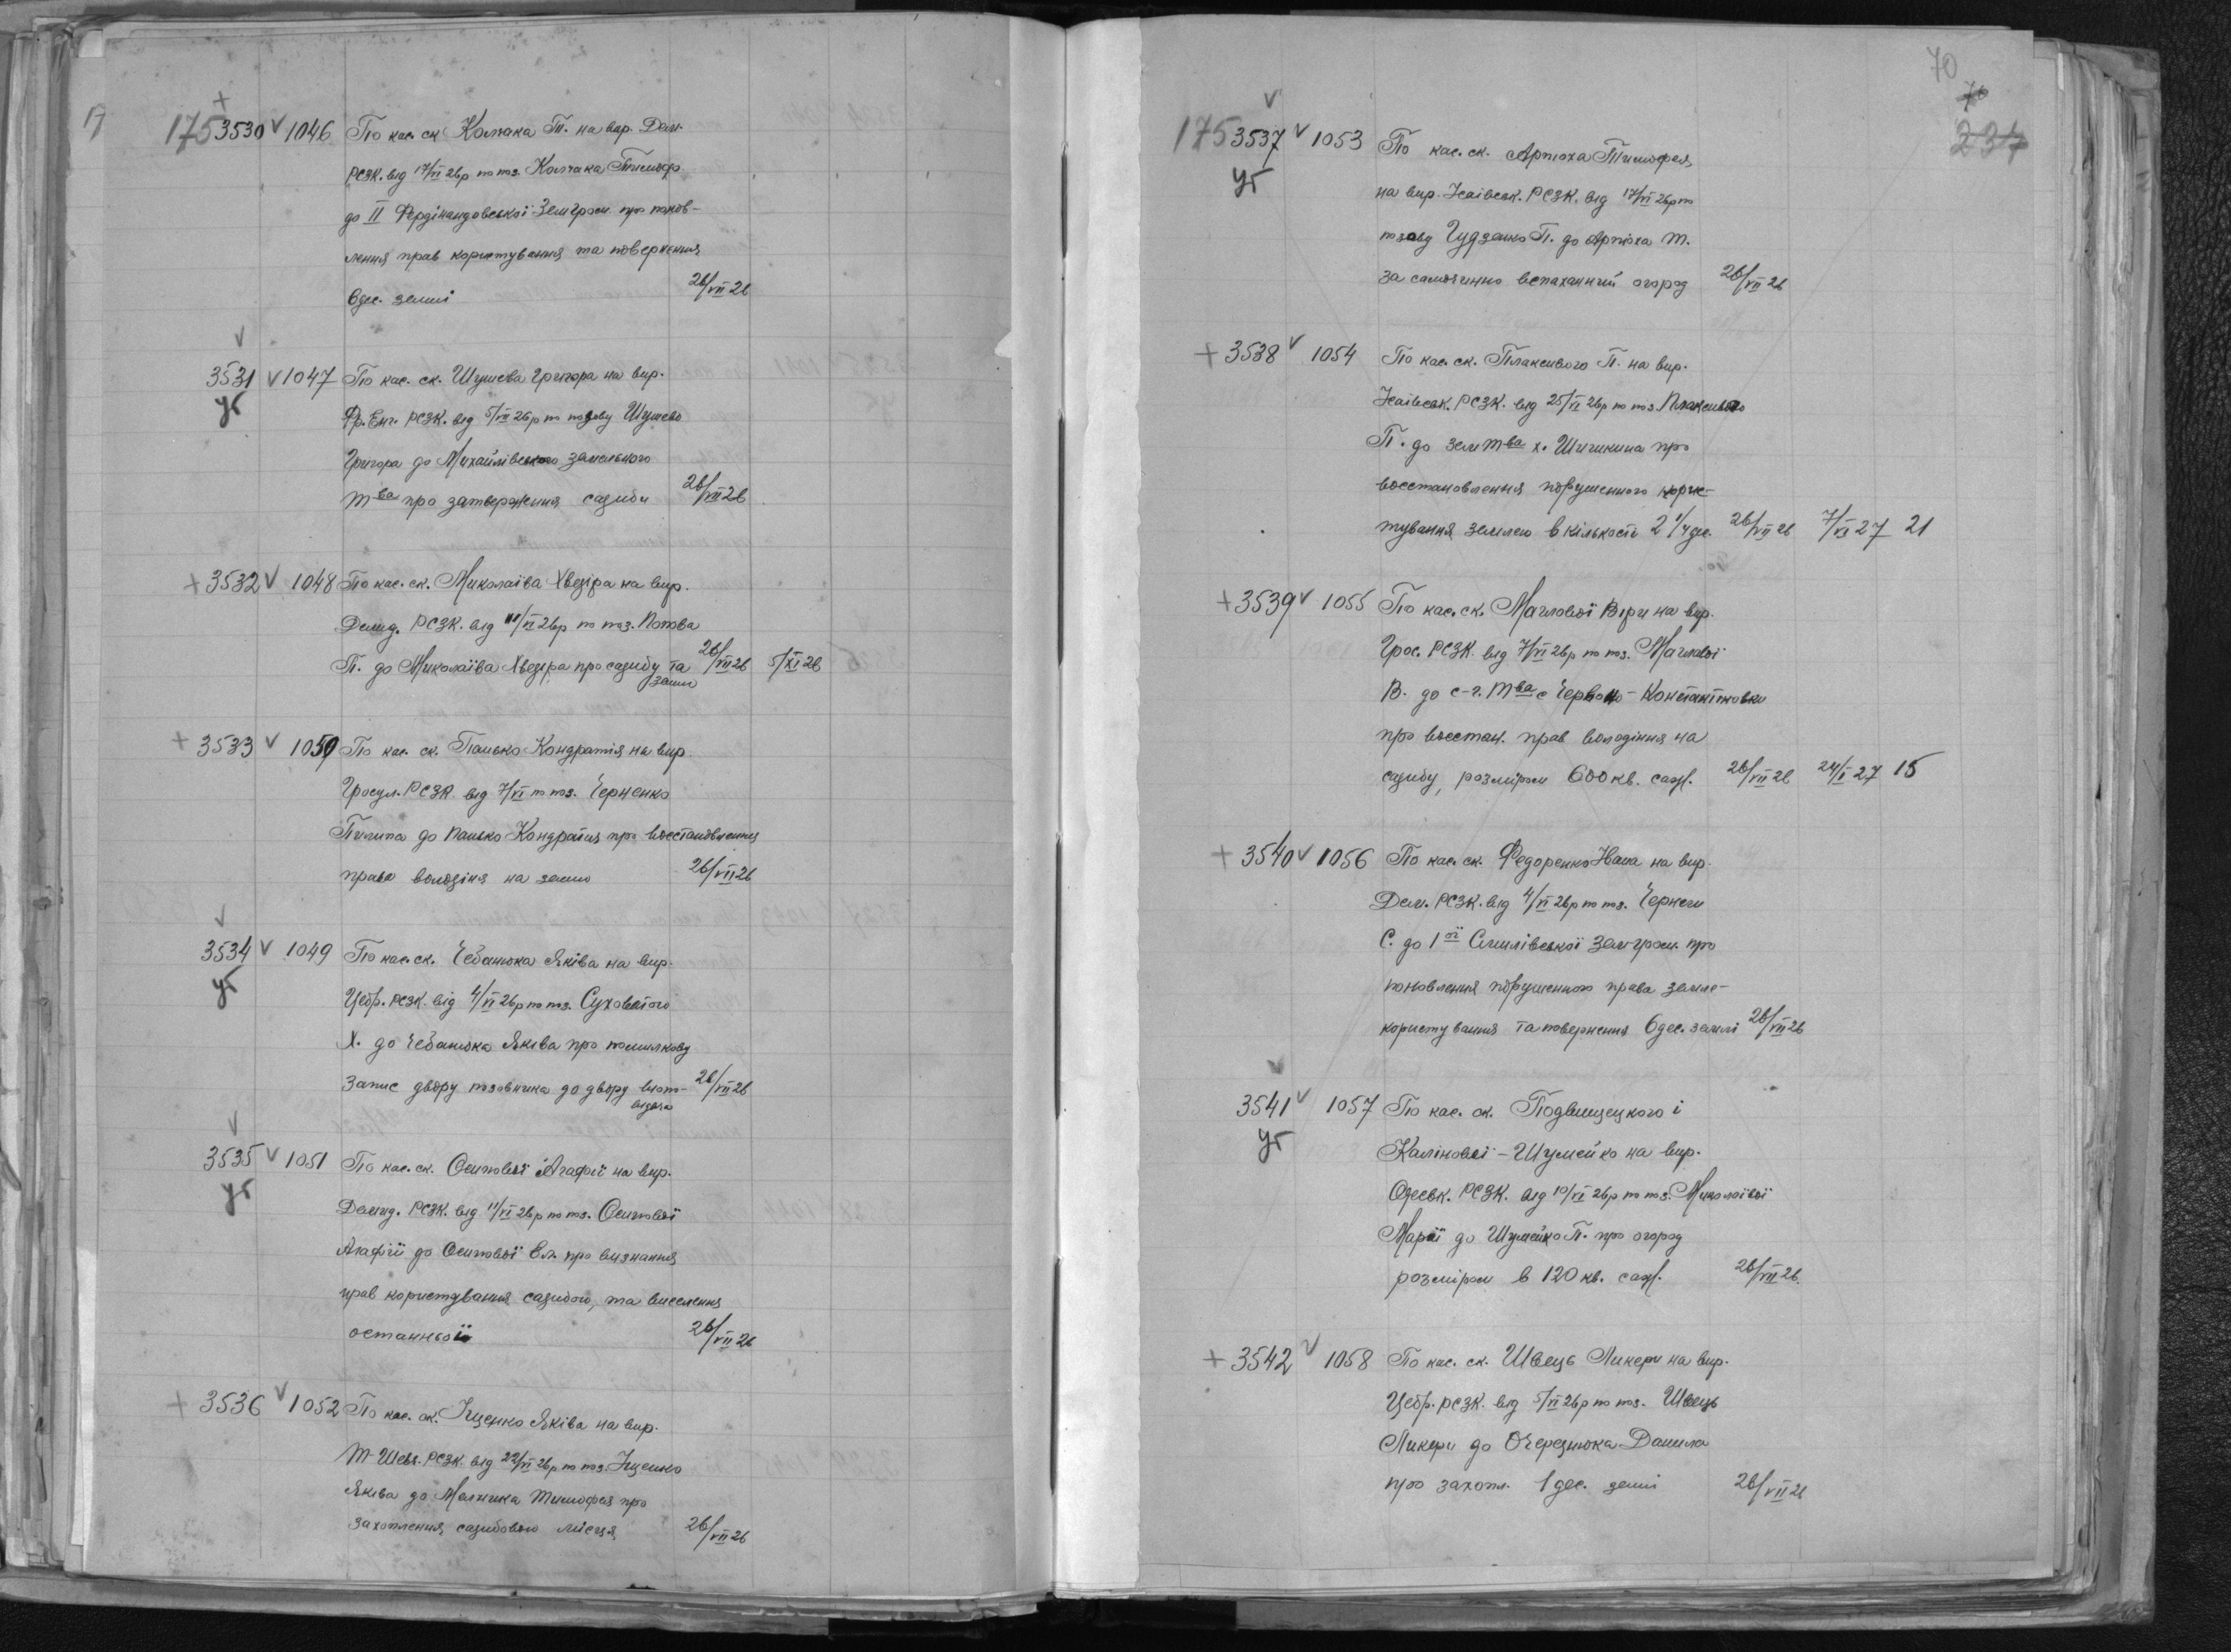 175 3530 v 1046 По кас. ск. Колчака Т. на вир. Дем.
РСЗК. від 17/VI 26р по поз. Колчака Тимофа
до ІІ Фердінандовської Земгром. про понов-
лення прав користування та повернення
6 дес. землі 26/VII 26
3531 v 1047 По кас. ск. Шушева Григора на вир.
Фр. Енг. РСЗК. від 5/VII 26р по позову Шушево
Григора до Михайлівського земельного
т-ва про затвердження садиби 26/VII 26
уг
+ 3532 v 1048 По кас. ск. Миколаїва Хведіра на вир.
Демид. РСЗК. від 11/VI 26р по поз. Попова
П. до Миколаїва Хведіра про садибу та землю 26/VII 26 5/XI 26
+ 3533 v 1050 По кас. ск. Панько Кондратія на вир.
Гросул. РСЗК. від 7/VI по поз. Черненко
Пилипа до Панько Кондратія про восстановлення
права володіня на землю 26/VII 26
3534 v 1049 По кас. ск. Чебанюка Яківа на вир.
уг
Цебр. РСЗК. від 4/VI 26р по поз. Суховетого
Х. до Чебанюка Яківа про помилкову
запис двору позовника до двору віт-
відача 26/VII 26
3535 v 1051 По кас. ск. Осипової Агафії на вир.
уг
Демид. РСЗК. від 11/VI 26р по поз. Осипової
Агафії до Осипової Ел. про визнання
прав користування садибою, та виселення
останньої 26/VII 26
+ 3536 v 1052 По кас. ск. Іщенко Яківа на вир.
Т-Шевч. РСЗК. від 22/VI 26р по поз. Іщенко
Яківа до Мельника Тимофея про
захоплення садибового місця 26/VII 26
70
70
237
175 3537 v 1053 По кас. ск. Артюха Тимофея,
уг
на вир. Ісаівськ. РСЗК. від 17/VI 26р по
позову Гудзенко П. до Артюха Т.
за самочинно вспаханний огород 26/VII 26
+ 3538 v 1054 По кас. ск. Плаксивого П. на вир.
Ісаівськ. РСЗК. від 25/VI 26р по поз. Плаксивого
П. до зем т-ва х. Шичикина про
восстановлення порушенного корис-
тування землею в кількості 2 1/4 дес. 26/VII 26 7/VI 27 21
+ 3539 v 1055 По кас. ск. Маглової Віри на вир.
Грос. РСЗК. від 7/VI 26р по поз. Маглової
В. до с-г. т-ва с Червоно-Константіновки
про восстан. прав володіння на
садибу, розміром 600 кв. саж. 26/VII 26 24/I 27 15
+ 3540 v 1056 По кас. ск. Федоренко Івана на вир.
Дем. РСЗК. від 4/VI 26р по поз. Чернеги
С. до 1ої Смилівської земгром. про
поновлення порушенного права земле-
користування та повернення 6 дес. землі 26/VII 26
3541 v 1057 По кас. ск. Подвишецького і
уг
Калінової-Шумейко на вир.
Одеськ. РСЗК. від 10/VI 26р по поз. Миколаївої
Марії до Шумейко П. про огород
розміром в 120 кв. саж. 26/VII 26.
+ 3542 v 1058 По кас. ск. Швець Ликери на вир.
Цебр. РСЗК. від 5/VI 26р по поз. Швець
Ликери до Очередиюка Данила
про захопл. 1 дес. землі 26/VII 26